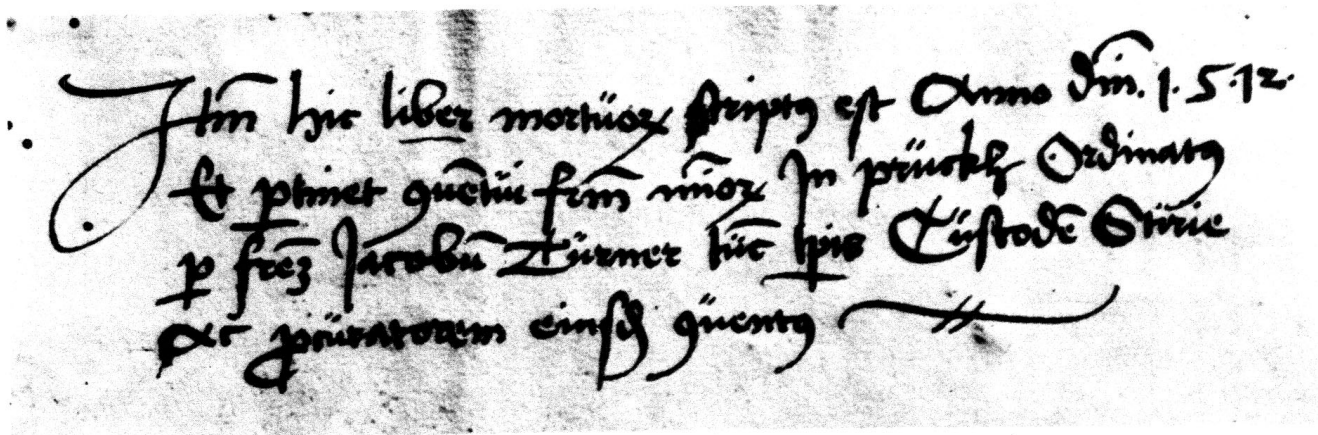 Itm̄ hic liber mortuoꝝ scriptꝰ est Anno dm̄. 1.5.12.
Et ꝑtinet ꝯuētui frm̄ mīoꝝ In prückh Ordinatꝰ
ꝑ frēꝫ Jacobū Türner tūc tꝑis Custodē Stirie
Ac ꝓcuratorem eiusd̄ ꝯuentꝰ